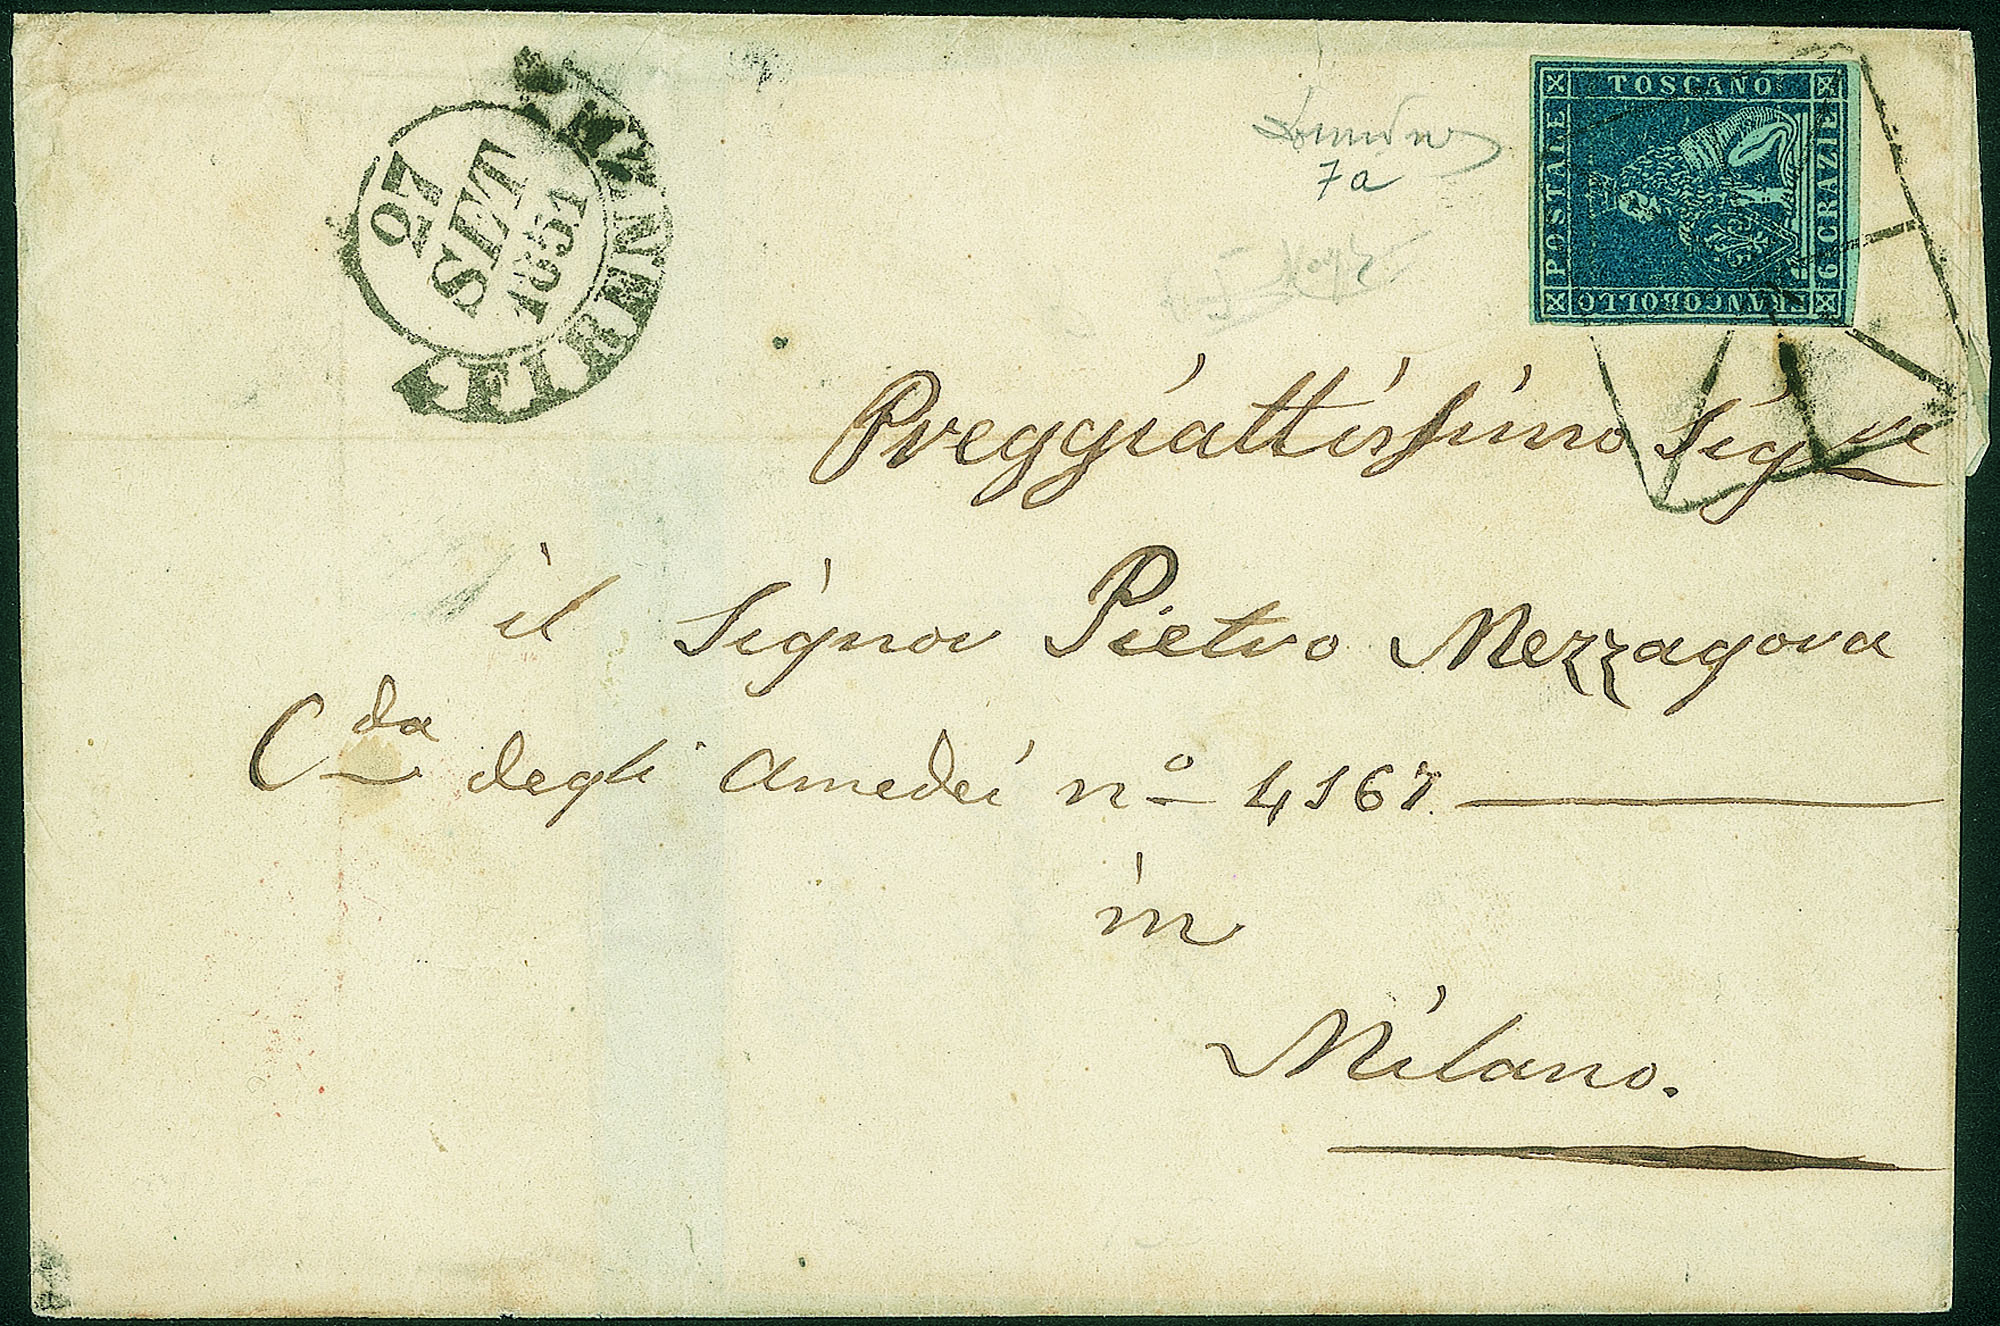 27
SET
1851
FIRENZE
7a
TOSCANO
POSTALE
6 CRAZIE
FRANCOBOLLO
Preggiattissimo Sig.re
il Signor Pietro Mezzagora
C.da degli Amedei n.o 4167.
in
Milano.